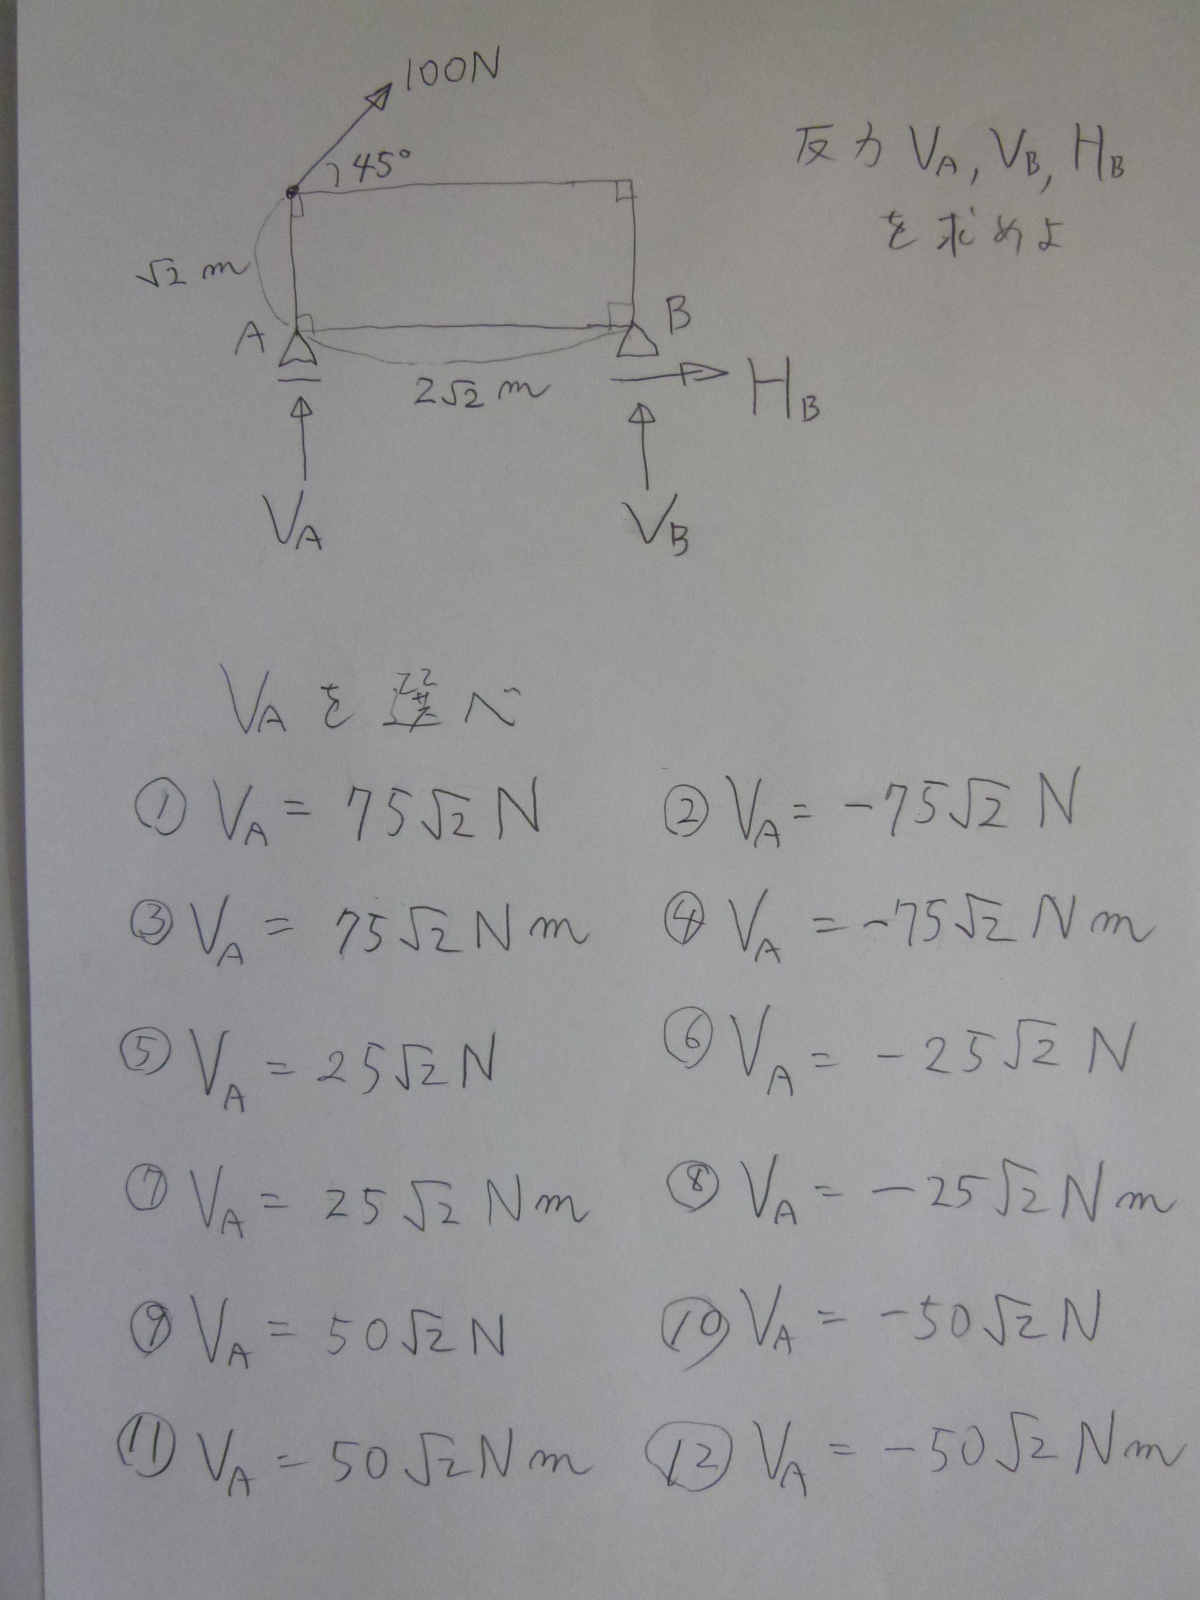 100N
45°
反力 VA, VB, HB
を求めよ
√2 m
A
B
2√2 m
HB
VA
VB
VAを選べ
① VA = 75√2 N
② VA = -75√2 N
③ VA = 75√2 N m
④ VA = -75√2 N m
⑤ VA = 25√2 N
⑥ VA = -25√2 N
⑦ VA = 25√2 N m
⑧ VA = -25√2 N m
⑨ VA = 50√2 N
⑩ VA = -50√2 N
⑪ VA = 50√2 N m
⑫ VA = -50√2 N m